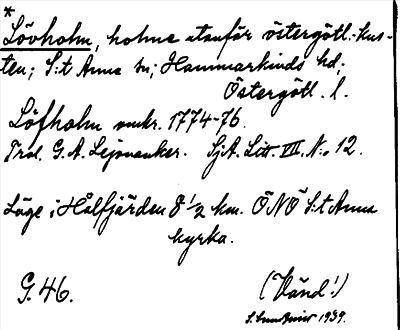 *
Lövholm, holme utanför östergötl. kus-
ten; S:t Anna sn; Hammarkinds hd;
Östergötl. l.
Löfholm omkr. 1774-76.
Trol. G.A. Lejonanker. SjA. Litt. VII. N:o 12.
Läge i Hålfjärden 8 1/2 km. ÖNÖ S:t Anna
kyrka.
G. 46.
(Vänd!)
1939.